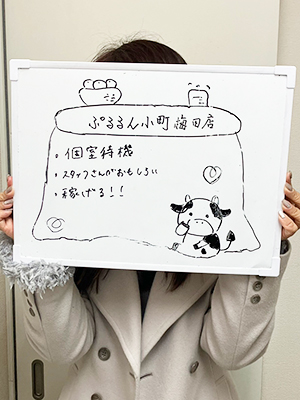 ぷるるん小町梅田店
・個室待機
・スタッフさんがおもしろい
・稼げる!!